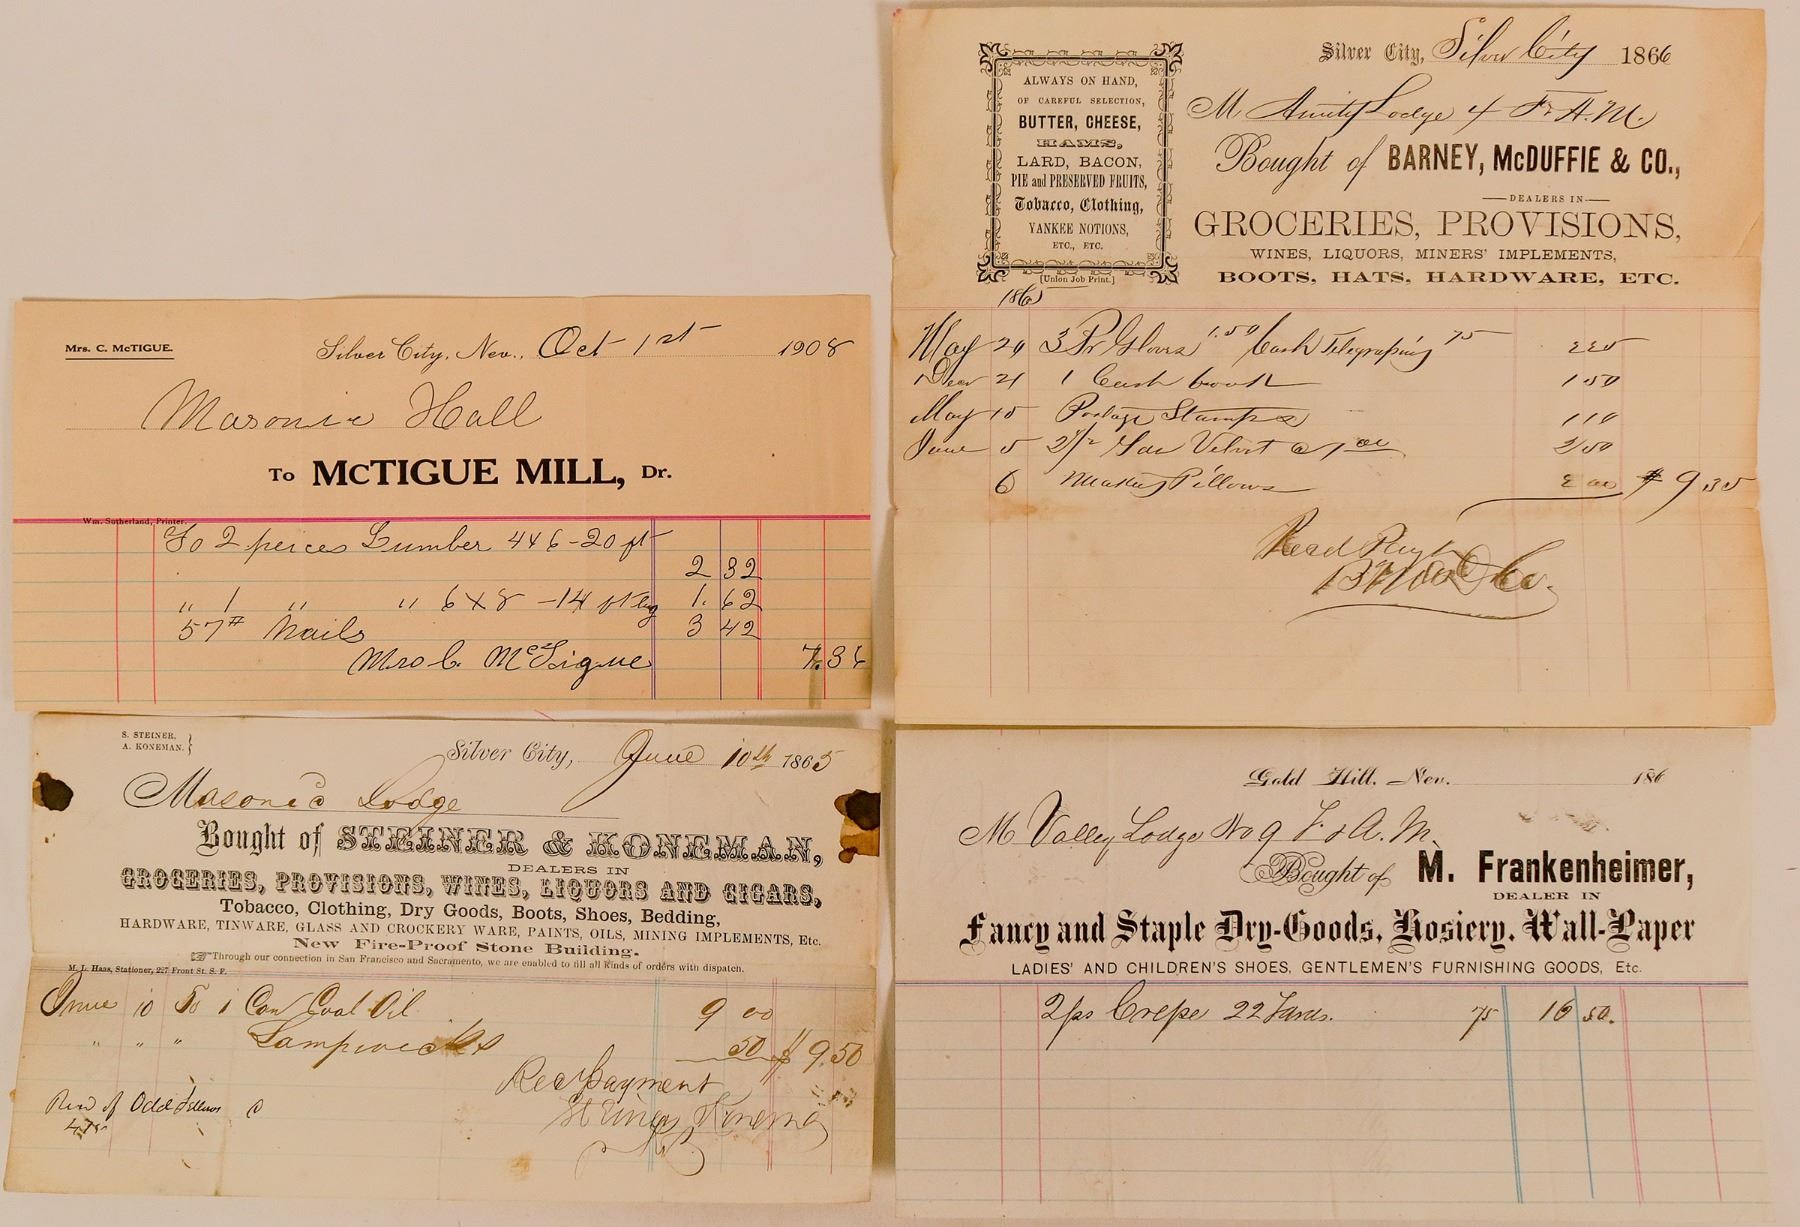 Mrs. C. McTIGUE.
Silver City, Nev., Oct 1st 1908
Masonic Hall
To McTIGUE MILL, Dr.
Wm. Sutherland, Printer.
To 2 peices Lumber 4x6-20 ft
2 32
" 1 " " 6x8-14 ft 1.62
57# Nails 3 42
Mrs C. McTigue 7.36
Silver City, Silver City 1866
ALWAYS ON HAND,
OF CAREFUL SELECTION,
BUTTER, CHEESE,
HAMS,
LARD, BACON,
PIE and PRESERVED FRUITS,
Tobacco, Clothing,
YANKEE NOTIONS,
ETC., ETC.
[Union Job Print.]
M Amity Lodge 4 F. A. M.
Bought of BARNEY, McDUFFIE & CO.,
DEALERS IN
GROCERIES, PROVISIONS,
WINES, LIQUORS, MINERS' IMPLEMENTS,
BOOTS, HATS, HARDWARE, ETC.
1865
May 29 3 Pr Gloves 1.50 Cash Telegraphing 75 2 25
Decr 21 1 Cash book 1 50
May 15 Postage Stamps 1 10
June 5 2 1/2 Velvet @ 1 00 2 50
6 Making Pillows 2 00 $ 9.35
Recd Payt
S. STEINER,
A. KONEMAN.
Silver City, June 10th 1865
Masonic Lodge
Bought of STEINER & KONEMAN,
DEALERS IN
GROCERIES, PROVISIONS, WINES, LIQUORS AND CIGARS,
Tobacco, Clothing, Dry Goods, Boots, Shoes, Bedding,
HARDWARE, TINWARE, GLASS AND CROCKERY WARE, PAINTS, OILS, MINING IMPLEMENTS, Etc.
New Fire-Proof Stone Building.
Through our connection in San Francisco and Sacramento, we are enabled to fill all kinds of orders with dispatch.
M. L. Haas, Stationer, 227 Front St. S. F.
June 10 To 1 Can Coal Oil 9 00
" " " Lampwicks 50 $ 9.50
Rec Payment
Steiner & Koneman
Recd of Odd Fellows
475
Gold Hill, Nev. 186
M Valley Lodge No 9 F. & A. M.
Bought of M. Frankenheimer,
DEALER IN
Fancy and Staple Dry-Goods, Hosiery, Wall-Paper
LADIES' AND CHILDREN'S SHOES, GENTLEMEN'S FURNISHING GOODS, Etc.
2 ps Crepe 22 Yards. 75 16 50.